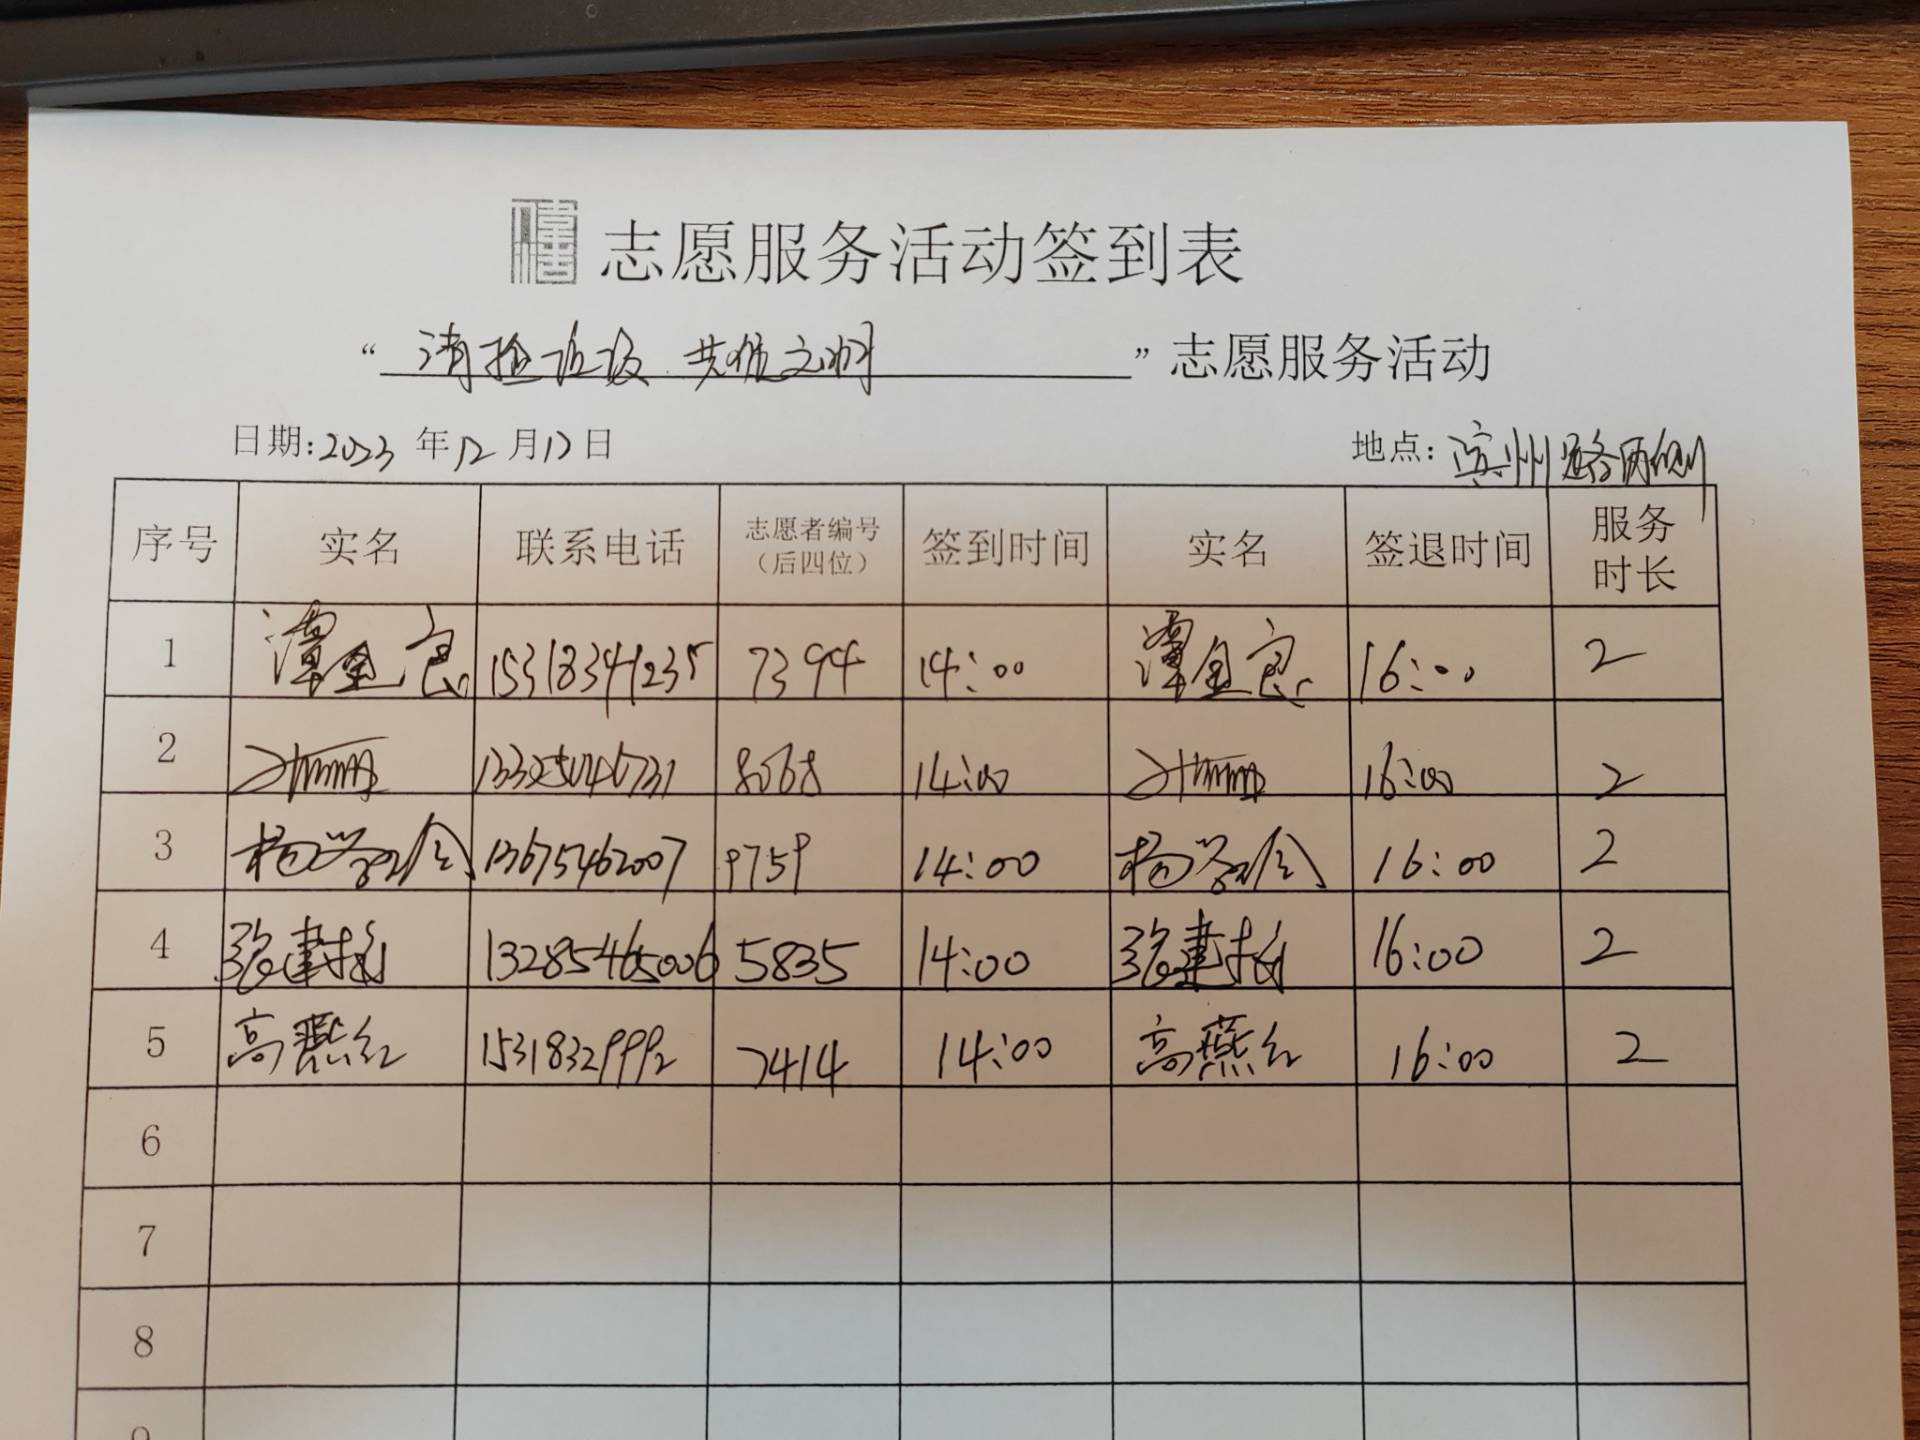 志愿服务活动签到表
“清捡垃圾 共创文明”志愿服务活动
日期:2023年12月12日 地点:滨州路两侧
序号 实名 联系电话 志愿者编号（后四位） 签到时间 实名 签退时间 服务时长
1 谭金良 15318341235 7394 14:00 谭金良 16:00 2
2 13325046731 8068 14:00 16:00 2
3 杨学玲 13675462007 9759 14:00 杨学玲 16:00 2
4 张建 13285465006 5835 14:00 张建 16:00 2
5 高燕红 15318329992 7414 14:00 高燕红 16:00 2
6
7
8